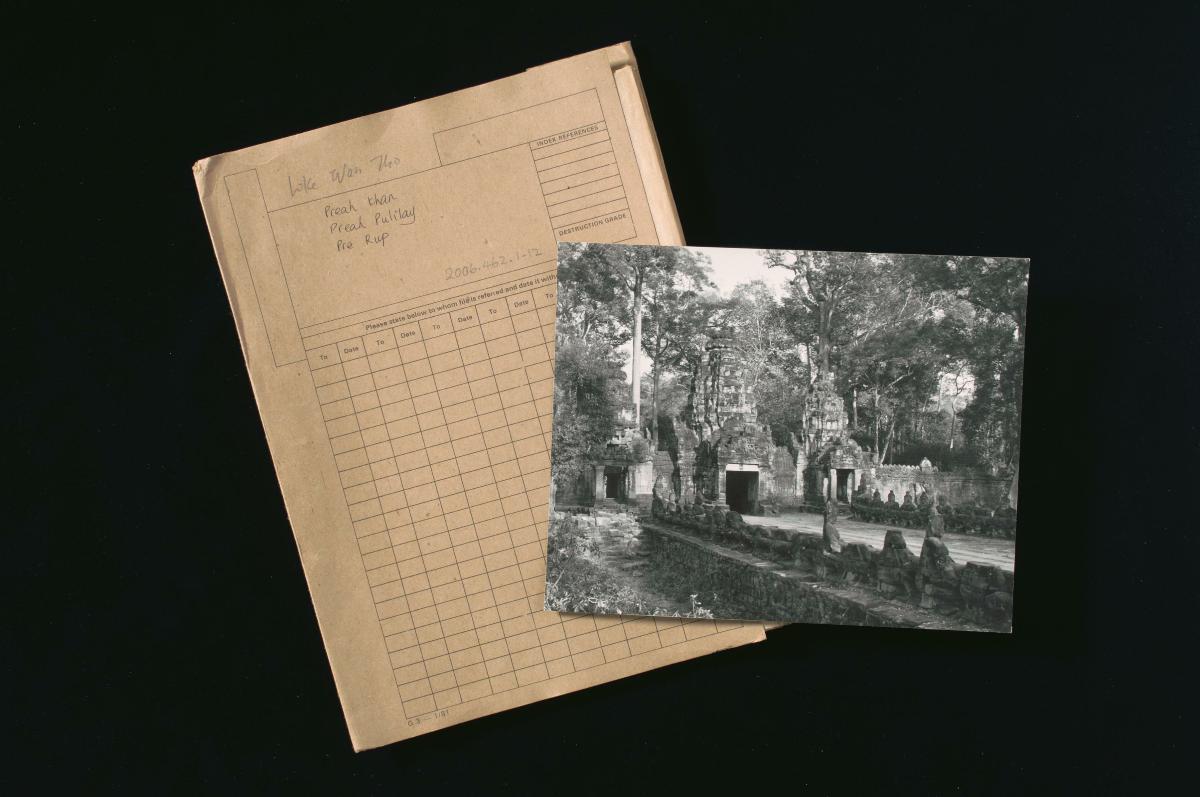 Loke Wan Tho
INDEX REFERENCES
Preah Khan
Preah Pulilay
Pre Rup
DESTRUCTION GRADE
2006.462.1-12
Please state below to whom file is referred and date it with
To Date To Date To Date To Date To
G.3 — 1/81